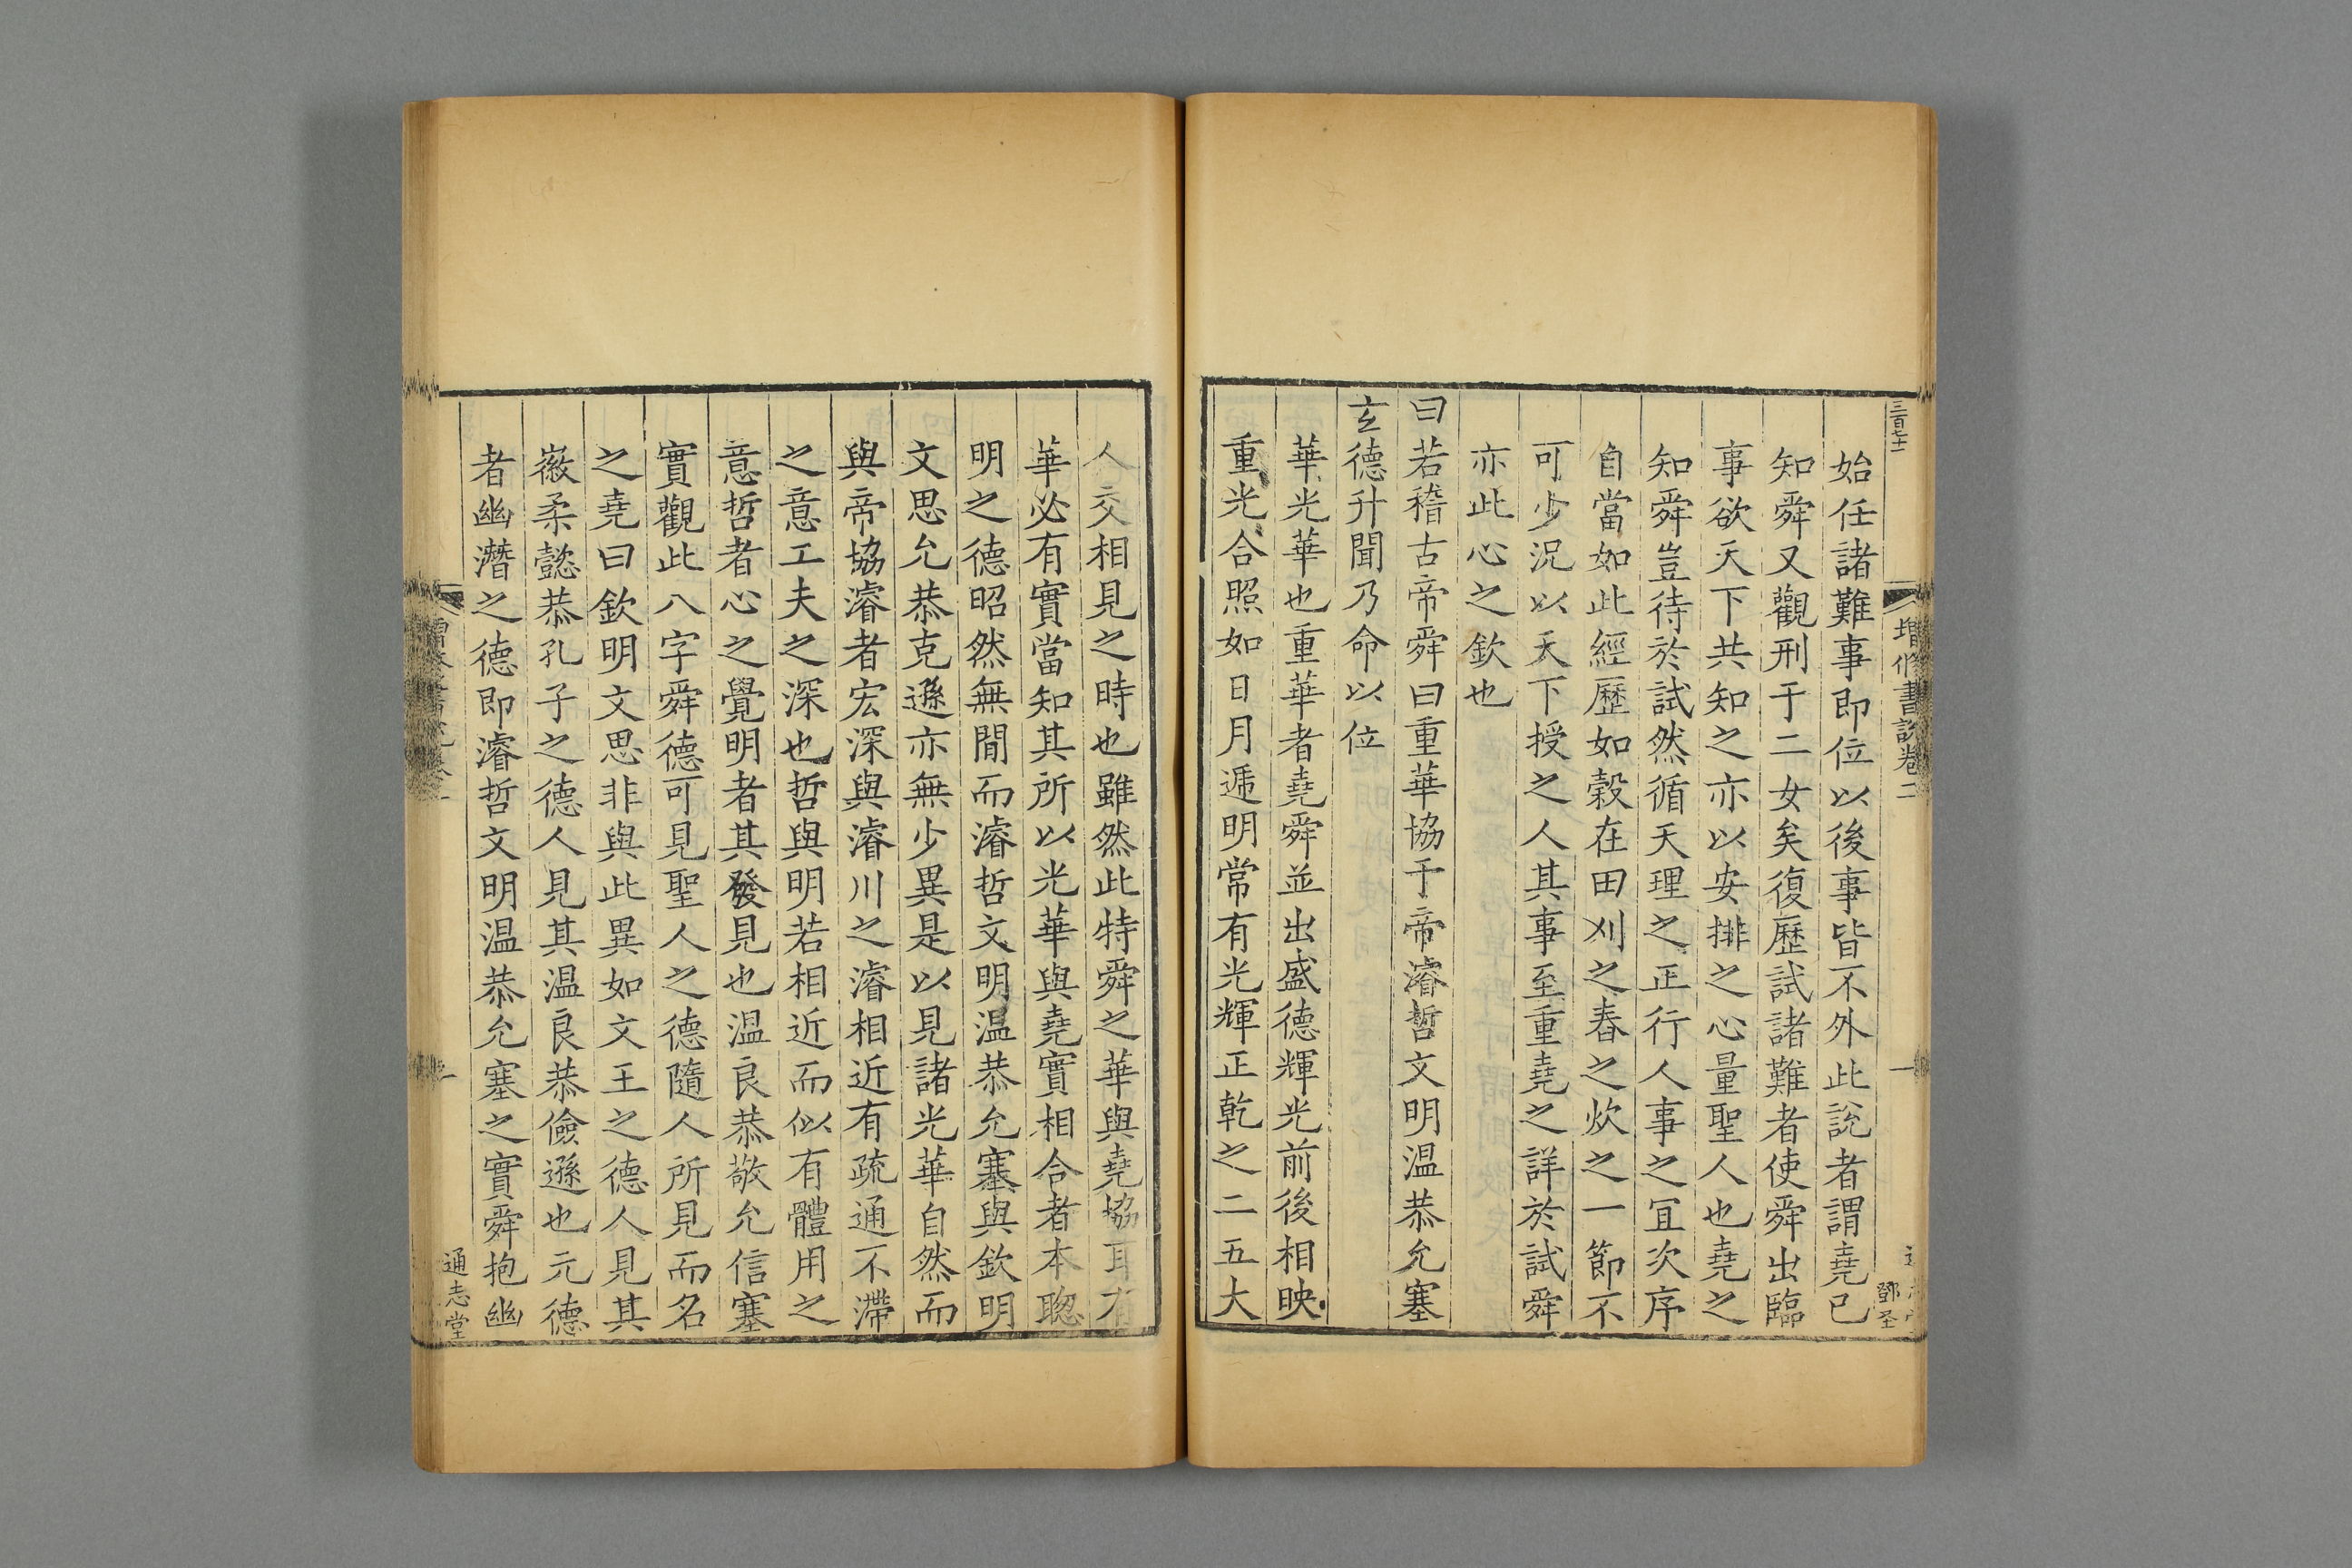 三百七十一
增修書說卷二
一
鄧圣
始任諸難事即位以後事皆不外此說者謂堯已
知舜又觀刑于二女矣復歷試諸難者使舜出臨
事欲天下共知之亦以安排之心量聖人也堯之
知舜豈待於試然循天理之正行人事之宜次序
自當如此經歷如穀在田刈之舂之炊之一節不
可少況以天下授之人其事至重堯之詳於試舜
亦此心之欽也
曰若稽古帝舜曰重華協于帝濬哲文明温恭允塞
玄德升聞乃命以位
華光華也重華者堯舜並出盛德輝光前後相映
重光合照如日月遞明常有光輝正乾之二五大
人交相見之時也雖然此特舜之華與堯協耳有
華必有實當知其所以光華與堯實相合者本聰
明之德昭然無間而濬哲文明温恭允塞與欽明
文思允恭克遜亦無少異是以見諸光華自然而
與帝協濬者宏深與濬川之濬相近有疏通不滯
之意工夫之深也哲與明若相近而似有體用之
意哲者心之覺明者其發見也温良恭敬允信塞
實觀此八字舜德可見聖人之德隨人所見而名
之堯曰欽明文思非與此異如文王之德人見其
徽柔懿恭孔子之德人見其温良恭儉遜也元德
者幽潛之德即濬哲文明温恭允塞之實舜抱幽
通志堂